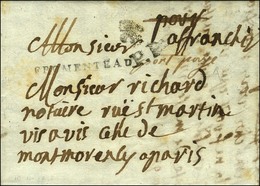 pour
Monsieur affranchi
port payé
FERMENTEAD
Monsieur richard
notaire rue st martin
vis avis celle de
montmorency a paris